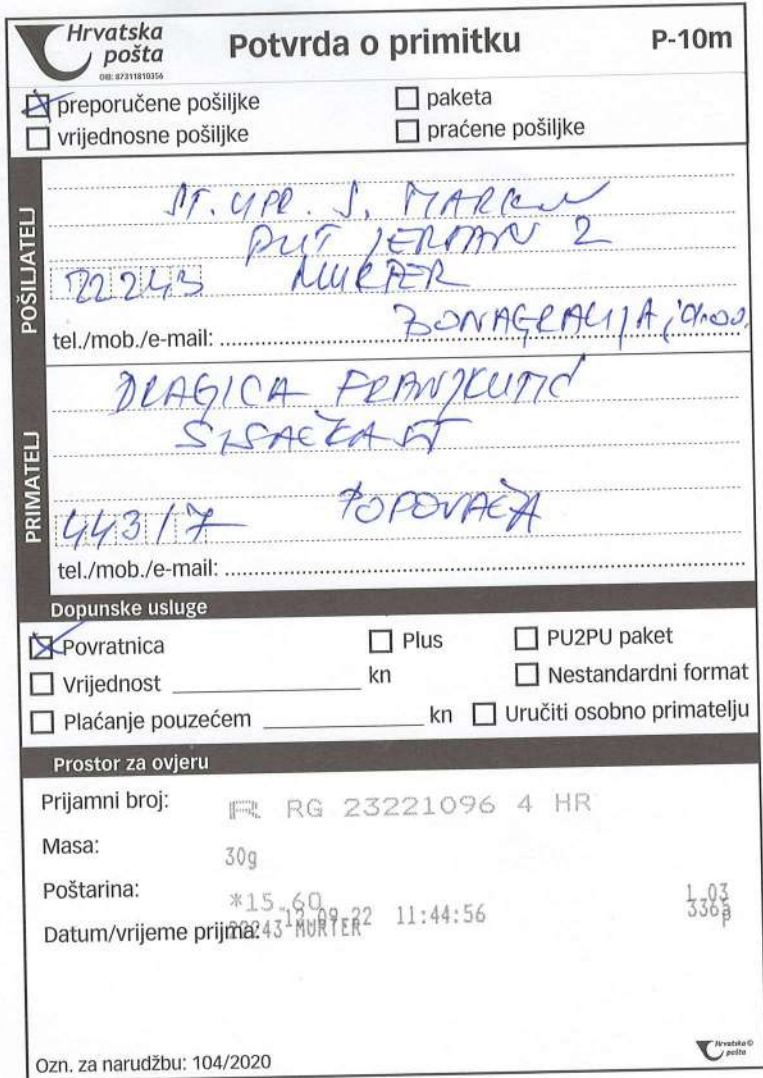 Hrvatska
pošta
OIB: 87311810356
Potvrda o primitku
P-10m
preporučene pošiljke
paketa
vrijednosne pošiljke
praćene pošiljke
POŠILJATELJ
ST. UPR. S. MARKIN
PUT JERSAN 2
22243 MURTER
BONAGRACIJA, d.o.o.
tel./mob./e-mail:
PRIMATELJ
DRAGICA FRANJKUTIĆ
SISAČKA
44317 POPOVAČA
tel./mob./e-mail:
Dopunske usluge
Povratnica
Plus
PU2PU paket
Vrijednost kn
Nestandardni format
Plaćanje pouzećem kn
Uručiti osobno primatelju
Prostor za ovjeru
Prijamni broj: R RG 23221096 4 HR
Masa: 30g
Poštarina: *15.60 1.03
12.09.22 11:44:56 3365
Datum/vrijeme prijma: 22243 MURTER P
Ozn. za narudžbu: 104/2020
Hrvatska
pošta